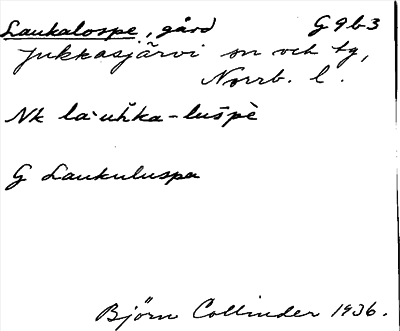 Laukalospe, gård G9b3
Jukkasjärvi sn och tg,
Norrb. l.
Nk la·uh̆ka-lušpè
G Laukuluspa
Björn Collinder 1936.